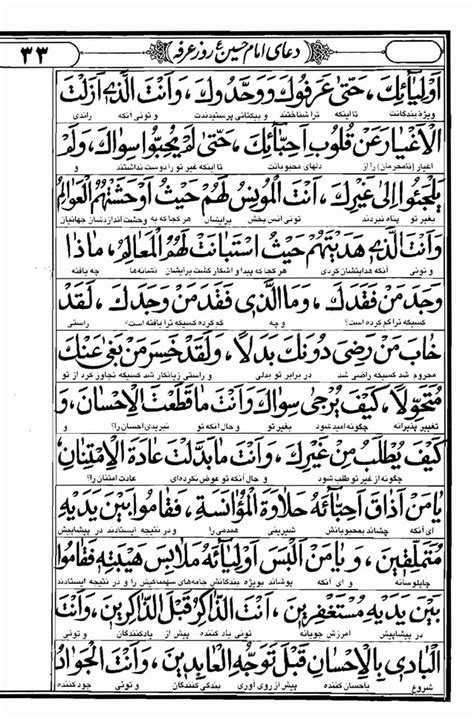 دعای امام حسین ع روز عرفه
۳۳
اَوْلِیٰآئِکَ، حَتّیٰ عَرَفُوکَ وَوَحَّدُوکَ، وَاَنْتَ الَّذی اَزَلْتَ
ویژه بندگانت تا اینکه ترا شناختند و بیکتائی پرستیدندت و توئی آنکه راندی
الْاَغْیٰارَ عَنْ قُلُوبِ اَحِبّٰآئِکَ، حَتّیٰ لَمْ یُحِبُّوا سِوٰاکَ، وَلَمْ
اغیار (نامحرمان) را از دلهای محبوبانت تا اینکه غیر تو را دوست نداشتند و
یَلْجَئُوا اِلیٰ غَیْرِکَ، اَنْتَ الْمُونِسُ لَهُمْ حَیْثُ اَوْحَشَتْهُمُ الْعَوٰالِمُ
بغیر تو پناه نبردند توئی انس بخش برایشان هر کجا که به وحشت اندازدشان جهانیان
وَاَنْتَ الَّذی هَدَیْتَهُمْ حَیْثُ اسْتَبٰانَتْ لَهُمُ الْمَعٰالِمُ، مٰاذٰا
و توئی آنکه هدایتشان کردی هر کجا که پیدا و آشکار گشت برایشان نشانه‌ها چه یافته
وَجَدَ مَنْ فَقَدَکَ، وَمَا الَّذی فَقَدَ مَنْ وَجَدَکَ، لَقَدْ
کسیکه ترا گم کرده است؟ و چه گم کرده کسیکه ترا یافته است؟ راستی
خٰابَ مَنْ رَضِیَ دُونَکَ بَدَلاً، وَلَقَدْ خَسِرَ مَنْ بَغیٰ عَنْکَ
محروم شد کسیکه راضی شد در برابر تو بدلی و راستی زیانکار شد کسیکه تجاوز کرد از تو
مُتَحَوِّلاً، کَیْفَ یُرْجیٰ سِوٰاکَ وَاَنْتَ مٰا قَطَعْتَ الْاِحْسٰانَ، وَ
تغییر پذیرانه چگونه امید شود بغیر تو و حال آنکه تو نبریدی احسان را؟ و
کَیْفَ یُطْلَبُ مِنْ غَیْرِکَ، وَاَنْتَ مٰا بَدَّلْتَ عٰادَةَ الْاِمْتِنٰانِ
چگونه از غیر تو طلب شود و حال آنکه تو عوض نکرده‌ای عادت امتنان را؟
یٰا مَنْ اَذٰاقَ اَحِبّٰآئَهُ حَلٰاوَةَ الْمُؤٰانَسَةِ، فَقٰامُوا بَیْنَ یَدَیْهِ
ای آنکه چشاند بمحبوبانش شیرینی همدمی را و در نتیجه ایستادند در پیشاپیش
مُتَمَلِّقینَ، وَ یٰا مَنْ اَلْبَسَ اَوْلِیٰآئَهُ مَلٰابِسَ هَیْبَتِهِ فَقٰامُوا
چاپلوسانه و ای آنکه پوشاند بویژه بندگانش جامه‌های سهمگینش را و در نتیجه ایستادند
بَیْنَ یَدَیْهِ مُسْتَغْفِرینَ، اَنْتَ الذّٰاکِرُ قَبْلَ الذّٰاکِرینَ، وَاَنْتَ
در پیشاپیش آمرزش جویانه توئی یاد کننده پیش از یادکنندگان و توئی
الْبٰادی بِالْاِحْسٰانِ قَبْلَ تَوَجُّهِ الْعٰابِدینَ، وَاَنْتَ الْجَوٰادُ
شروع باحسان کننده پیش از روی آوری بندگی کنندگان و توئی جود کننده